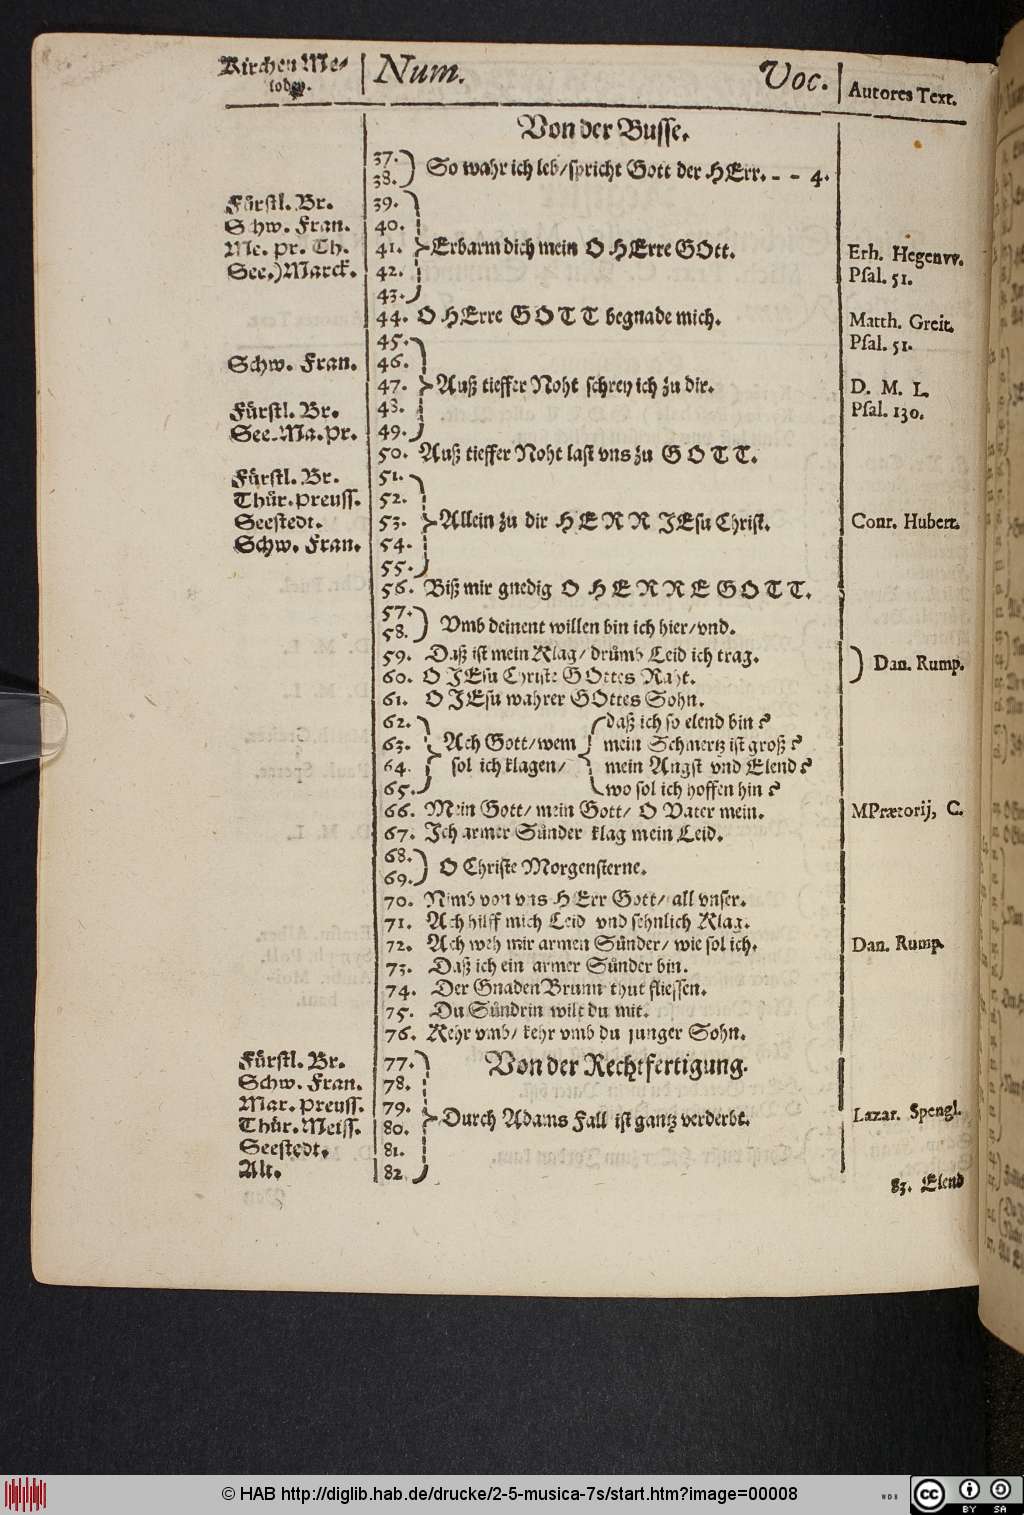 Kirchen Me- | Num. Voc. | Autores Text.
lodey.
Von der Busse.
37.
38. So wahr ich leb/ spricht Gott der HErr. - - 4.
Fürstl. Br. 39.
Schw. Fran. 40.
Me. Pr. Th. 41. Erbarm dich mein O HErre GOtt. Erh. Hegenvv.
See.) Marck. 42. Psal. 51.
43.
44. O HErre GOTT begnade mich. Matth. Greit.
45. Psal. 51.
Schw. Fran. 46.
47. Auß tieffer Noht schrey ich zu dir. D. M. L.
Fürstl. Br. 48. Psal. 130.
See. Ma. Pr. 49.
50. Auß tieffer Noht last vns zu GOTT.
Fürstl. Br. 51.
Thür. Preuss. 52.
Seestedt. 53. Allein zu dir HERR JEsu Christ. Conr. Hubert.
Schw. Fran. 54.
55.
56. Biß mir gnedig O HERRE GOTT.
57.
58. Vmb deinent willen bin ich hier/ vnd.
59. Daß ist mein Klag/ drümb Leid ich trag. Dan. Rump.
60. O JEsu Christe GOttes Raht.
61. O JEsu wahrer GOttes Sohn.
62. daß ich so elend bin?
63. Ach Gott/ wem mein Schmertz ist groß?
64. sol ich klagen/ mein Angst vnd Elend?
65. wo sol ich hoffen hin?
66. Mein Gott/ mein Gott/ O Vater mein. MPrætorij, C.
67. Ich armer Sünder klag mein Leid.
68.
69. O Christe Morgensterne.
70. Nimb von vns HErr Gott/ all vnser.
71. Ach hilff mich Leid vnd sehnlich Klag.
72. Ach weh mir armen Sünder/ wie sol ich. Dan. Rump.
73. Daß ich ein armer Sünder bin.
74. Der GnadenBrunn thut fliessen.
75. Du Sündrin wilt du mit.
76. Kehr vmb/ kehr vmb du junger Sohn.
Fürstl. Br. 77. Von der Rechtfertigung.
Schw. Fran. 78.
Mar. Preuss. 79.
Thür. Meiss. 80. Durch Adams Fall ist gantz verderbt. Lazar. Spengl.
Seestedt. 81.
Alt. 82.
83. Elend
© HAB http://diglib.hab.de/drucke/2-5-musica-7s/start.htm?image=00008
WDB
cc BY SA